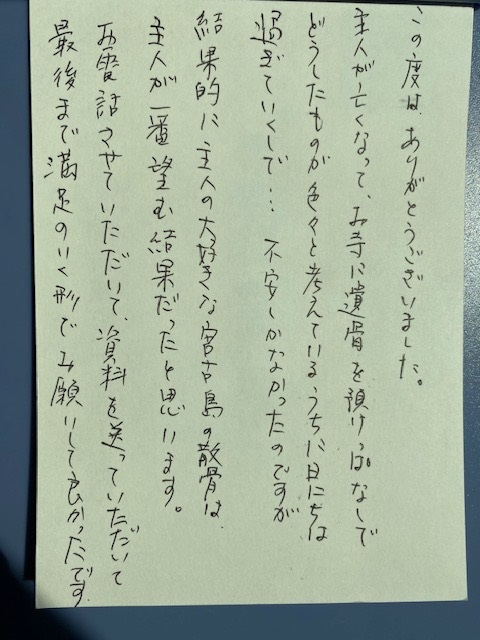 この度は、ありがとうございました。
主人が亡くなって、お寺に遺骨を預けっぱなしで
どうしたものが色々と考えているうちに日にちは
過ぎていくしで… 不安しかなかったのですが
結果的に主人の大好きな宮古島の散骨は
主人が一番望む結果だったと思います。
お電話させていただいて、資料を送っていただいて
最後まで満足のいく形でお願いして良かったです